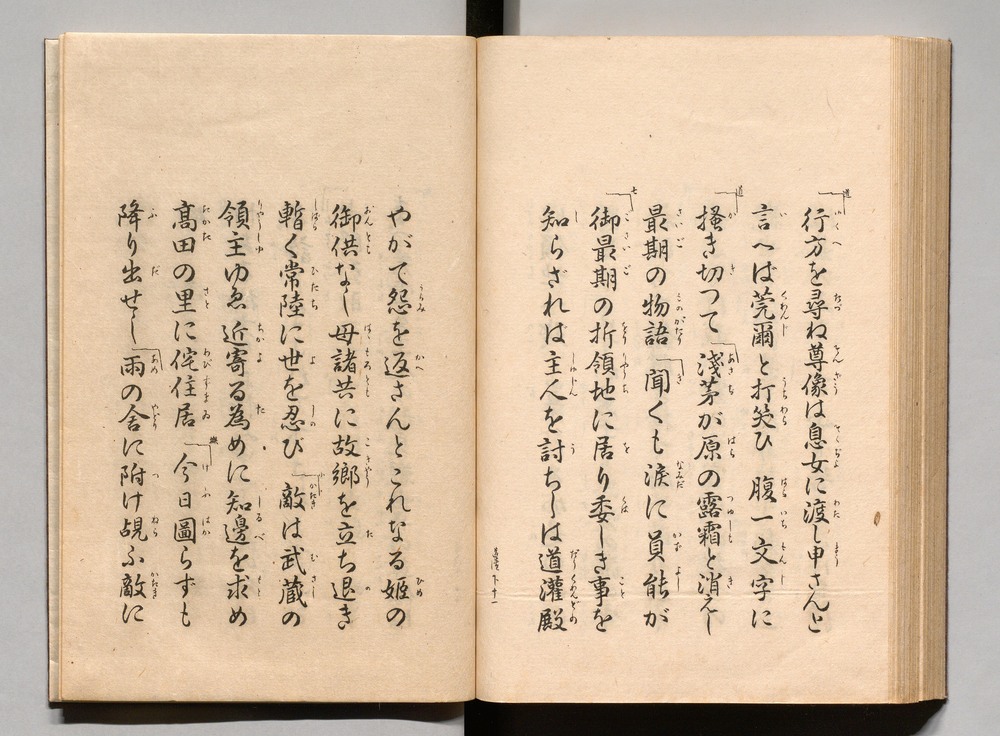 行方を尋ね尊像は息女に渡し申さんと
言へば莞爾と打笑ひ 腹一文字に
掻き切つて 淺茅が原の露霜と消えし
最期の物語 聞くも涙に員能が
御最期の折領地に居り委しき事を
知らざれは主人を討ちしは道灌殿
やがて怨を返さんとこれなる姫の
御供なし母諸共に故郷を立ち退き
暫く常陸に世を忍び 敵は武蔵の
領主ゆゑ近寄る為めに知邊を求め
髙田の里に侘住居 今日圖らずも
降り出せし雨の舎に附け覘ふ敵に